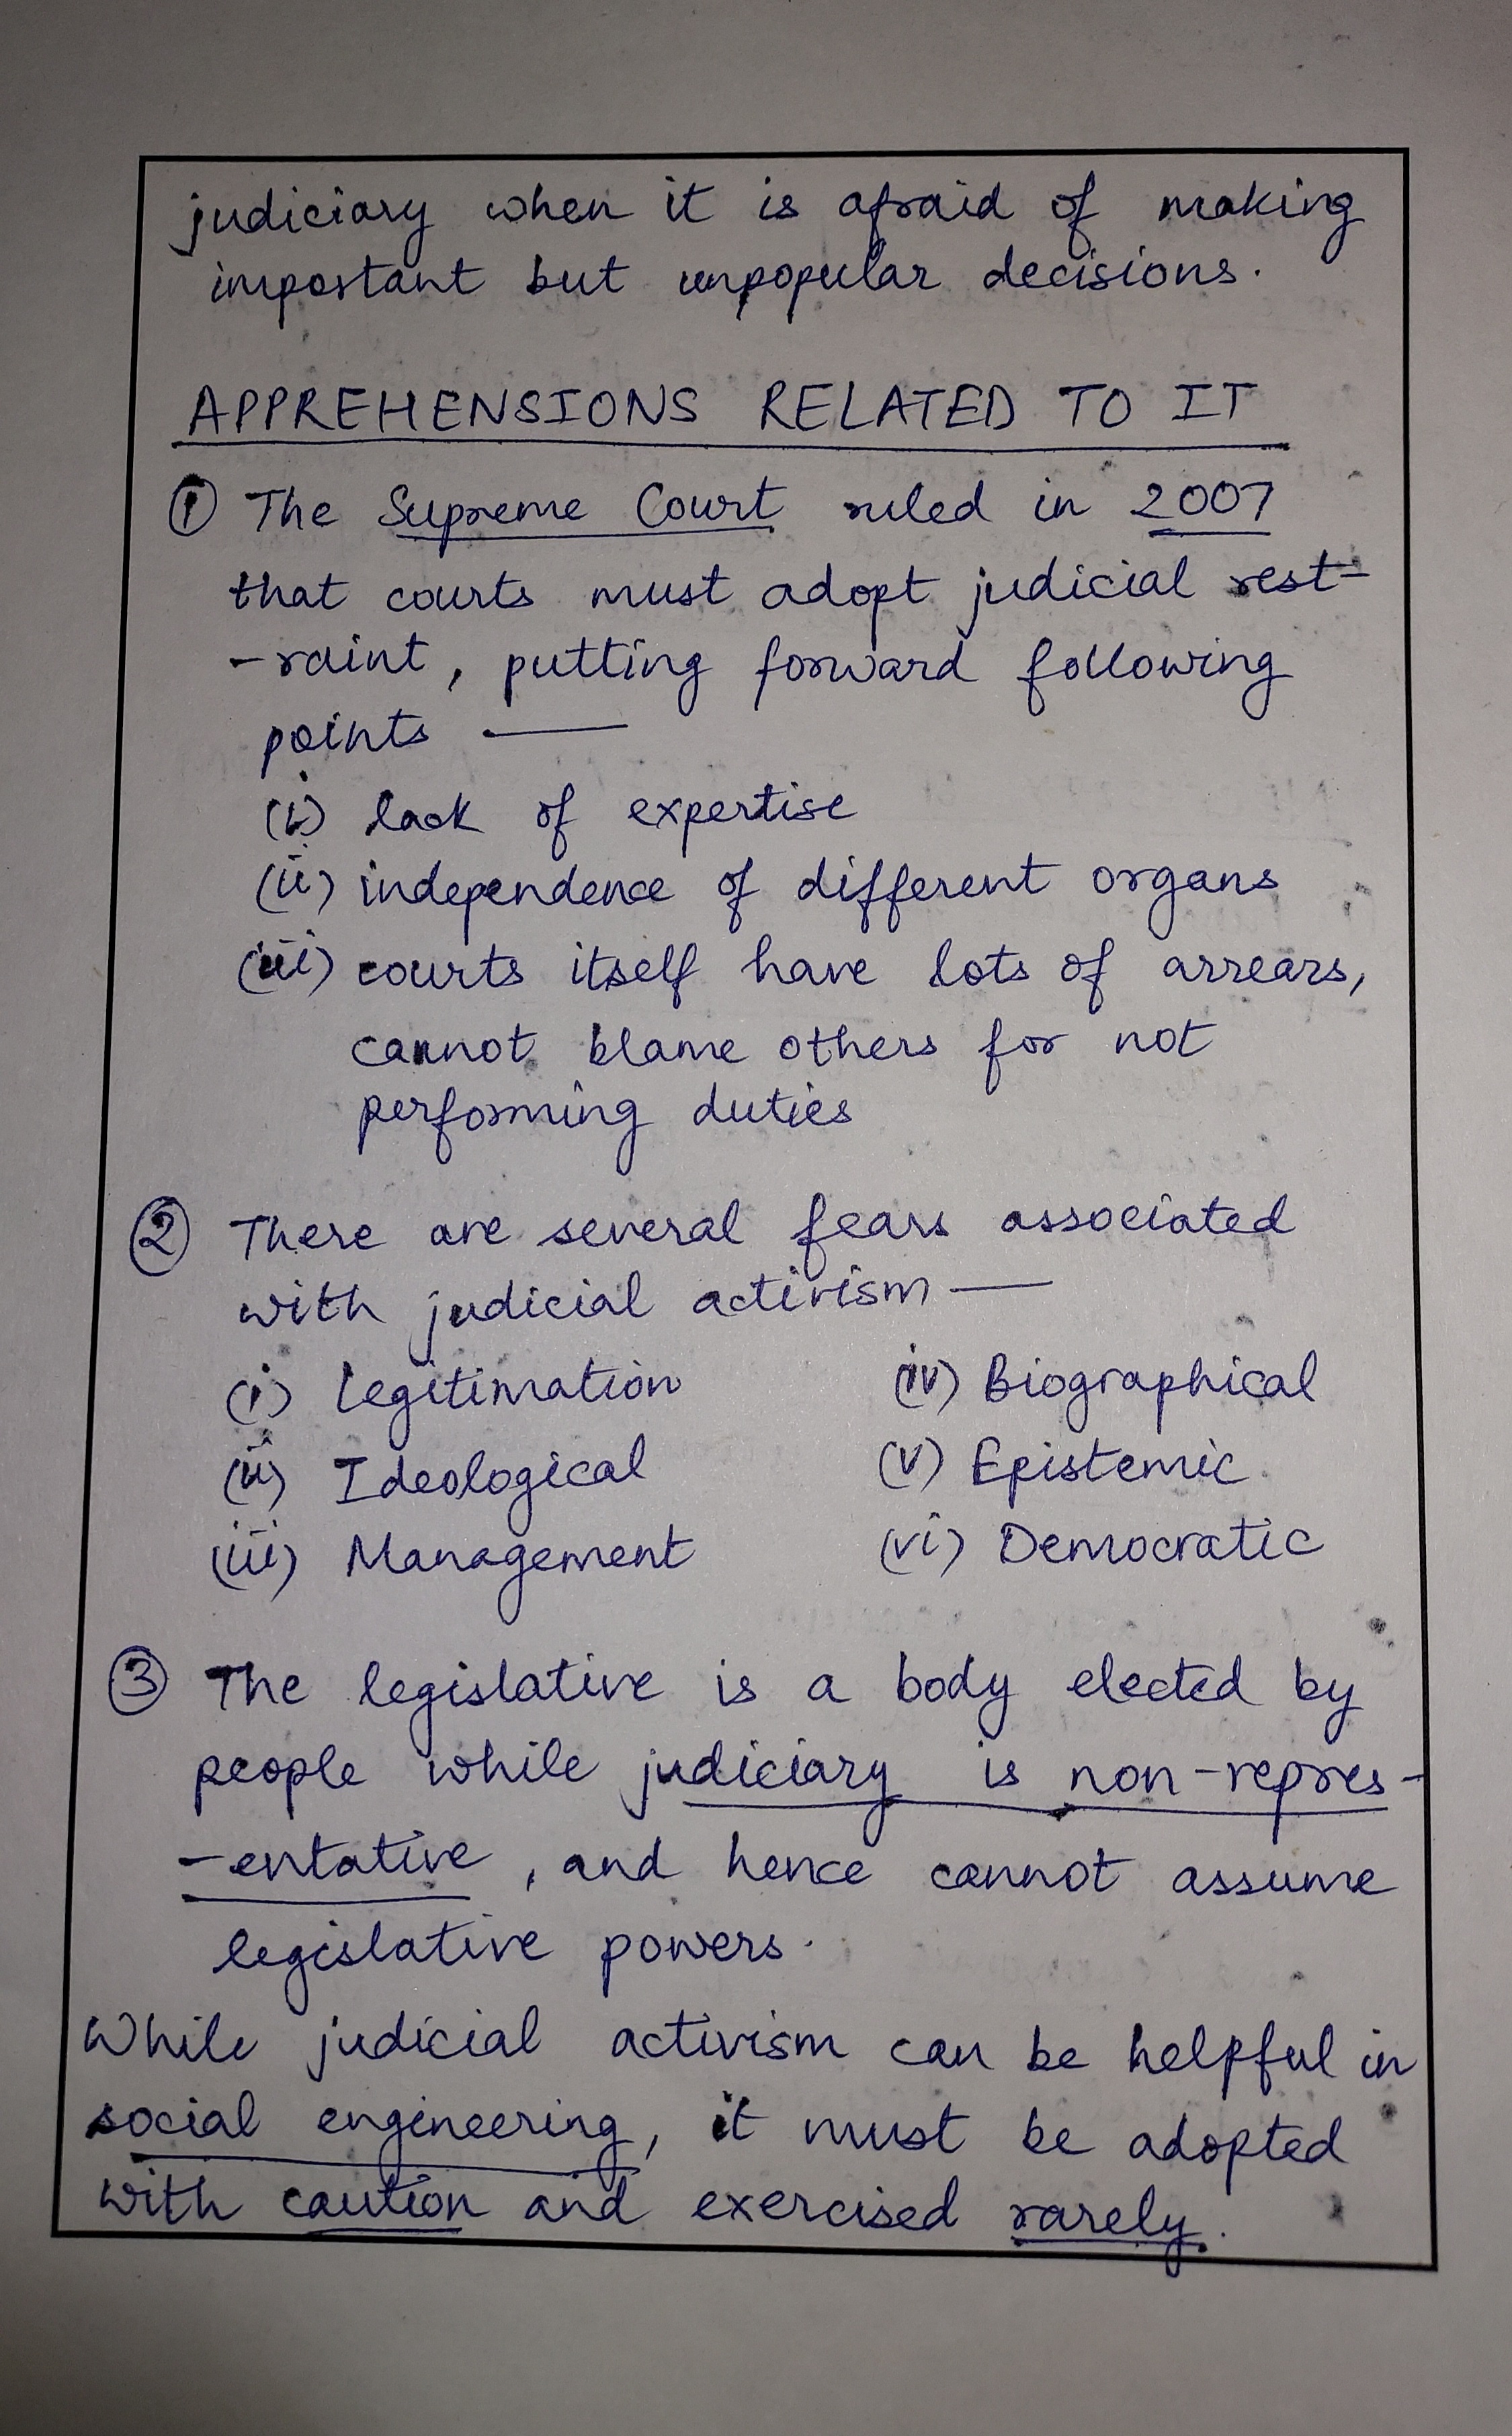 judiciary when it is afraid of making
important but unpopular decisions.
APPREHENSIONS RELATED TO IT
① The Supreme Court ruled in 2007
that courts must adopt judicial rest-
-raint, putting forward following
points —
(i) lack of expertise
(ii) independence of different organs
(iii) courts itself have lots of arrears,
cannot blame others for not
performing duties
② There are several fears associated
with judicial activism —
(i) Legitimation
(ii) Ideological
(iii) Management
(iv) Biographical
(v) Epistemic
(vi) Democratic
③ The legislative is a body elected by
people while judiciary is non-repres-
-entative, and hence cannot assume
legislative powers.
While judicial activism can be helpful in
social engineering, it must be adopted
with caution and exercised rarely.